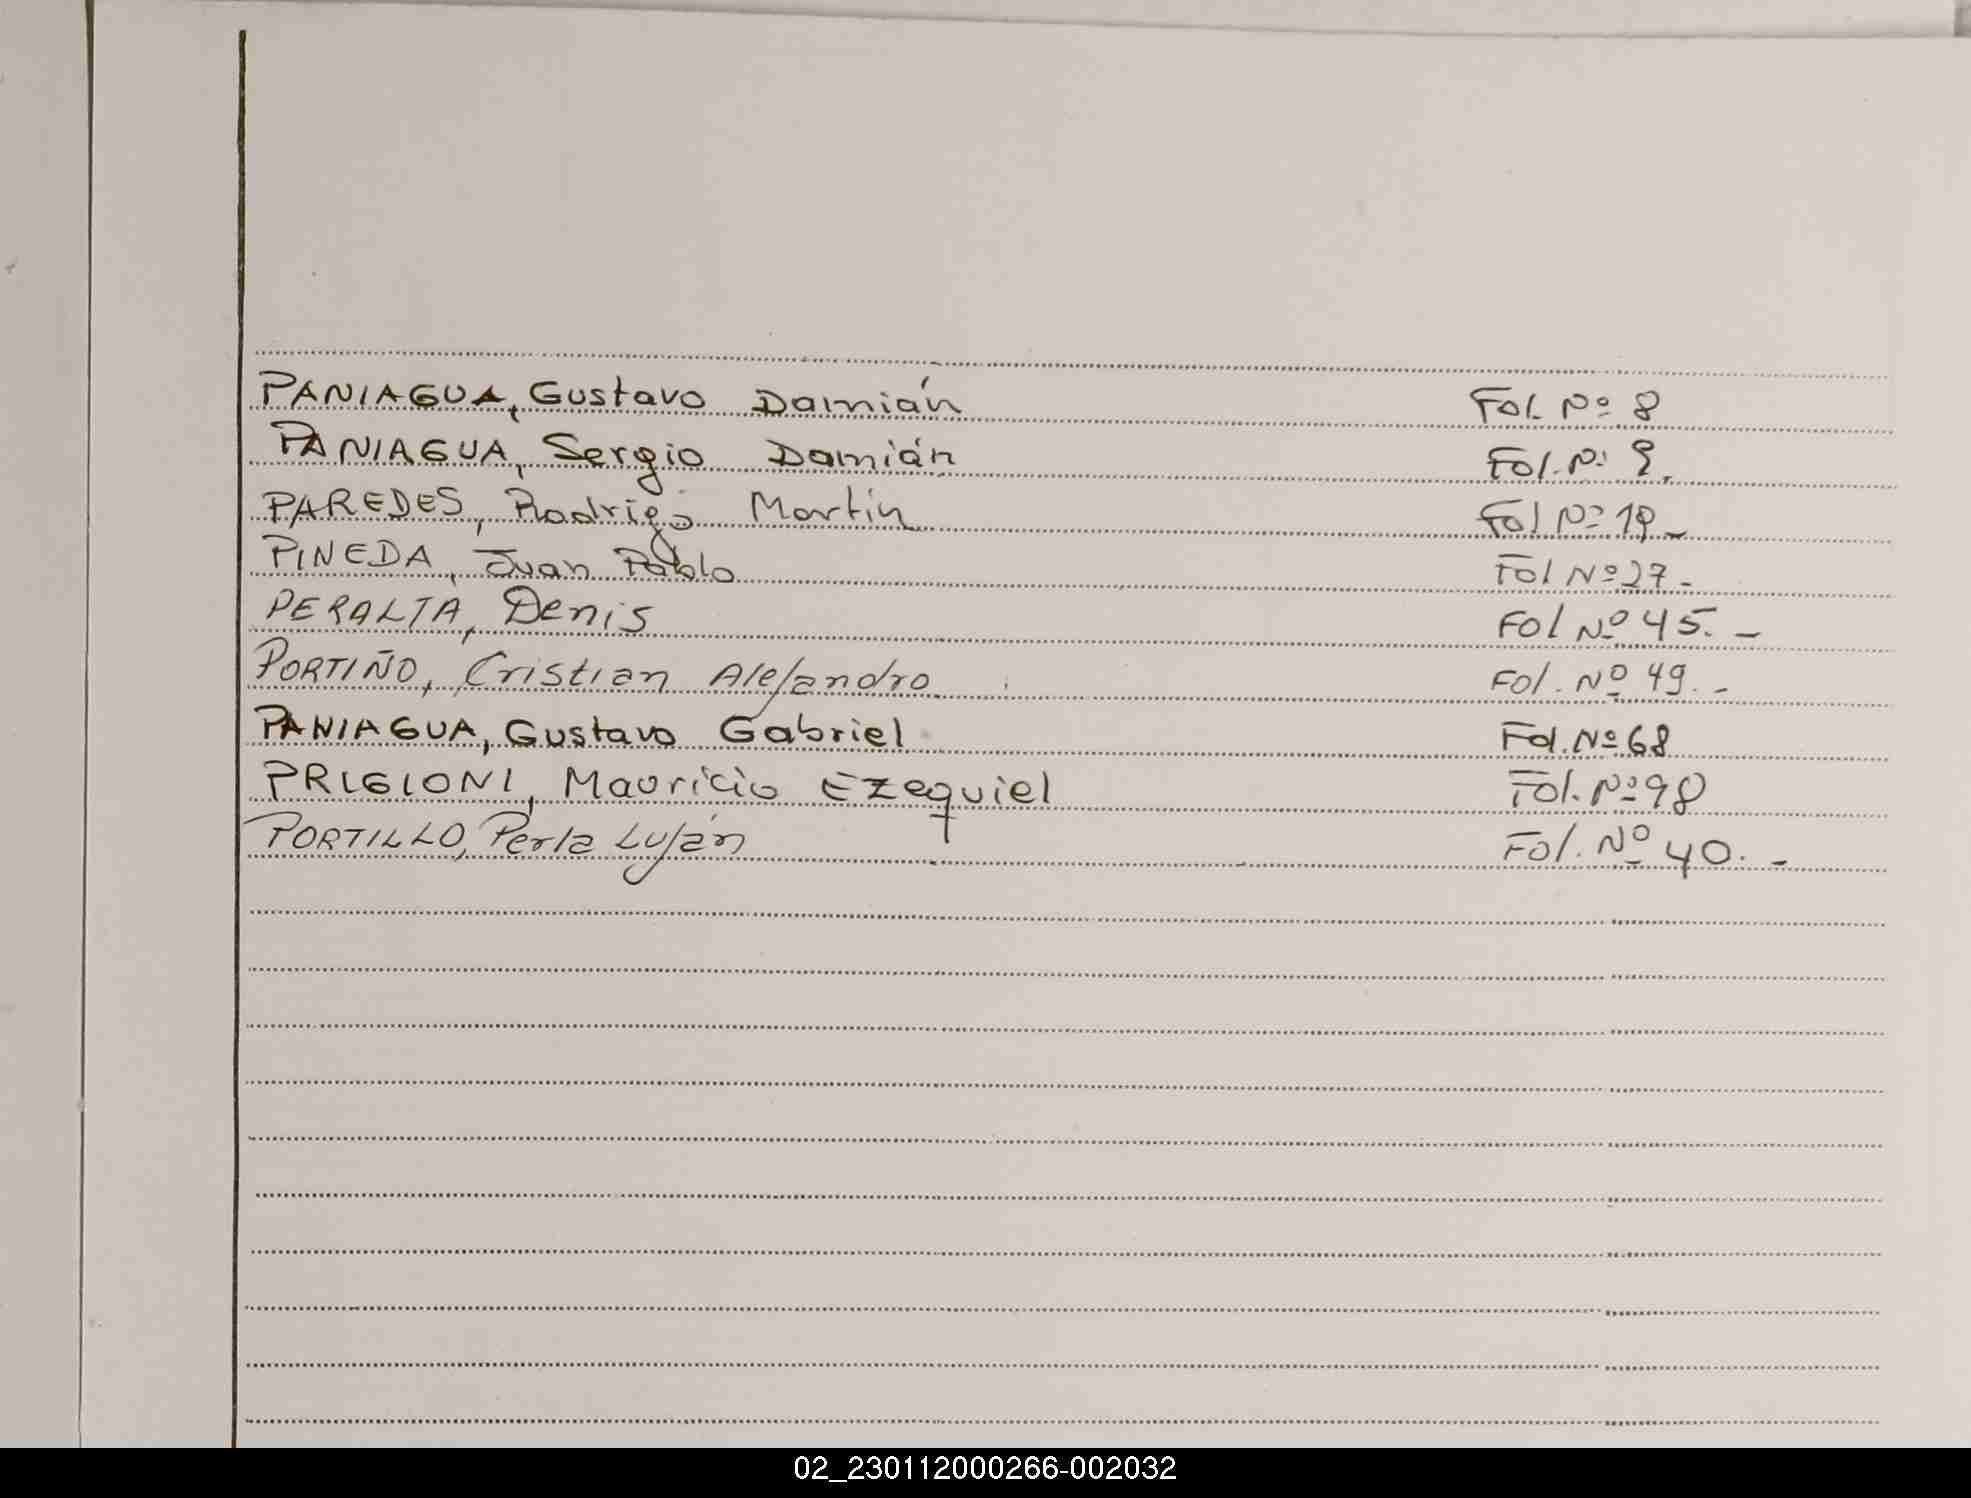 PANIAGUA, Gustavo Damián Fol. Nº 8
PANIAGUA, Sergio Damián Fol. Nº 9.
PAREDES, Rodrigo Martín Fol Nº 19 -
PINEDA, Juan Pablo Fol Nº 27 -
PERALTA, Denis Fol Nº 45. -
PORTIÑO, Cristian Alejandro Fol. Nº 49. -
PANIAGUA, Gustavo Gabriel Fol. Nº 68
PRIGIONI, Mauricio Ezequiel Fol. Nº 98
PORTILLO, Perla Luján Fol. Nº 40. -
02_230112000266-002032